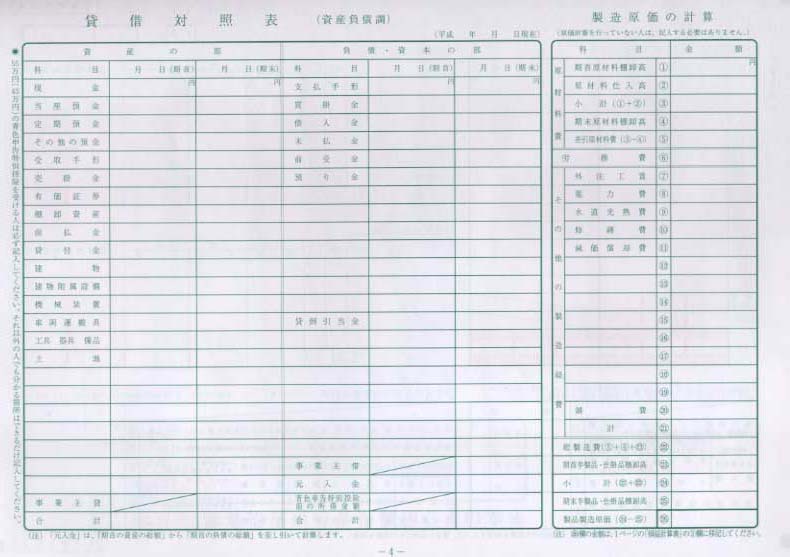 貸借対照表 (資産負債調)
(平成 年 月 日現在)
資産の部
負債・資本の部
科目 月 日(期首) 月 日(期末) 科目 月 日(期首) 月 日(期末)
現金 円 円 支払手形 円 円
当座預金 買掛金
定期預金 借入金
その他の預金 未払金
受取手形 前受金
売掛金 預り金
有価証券
棚卸資産
前払金
貸付金
建物
建物附属設備
機械装置
車両運搬具 貸倒引当金
工具 器具 備品
土地
事業主借
元入金
事業主貸 青色申告特別控除前の所得金額
合計 合計
(注) 「元入金」は、「期首の資産の総額」から「期首の負債の総額」を差し引いて計算します。
製造原価の計算
(原価計算を行っていない人は、記入する必要はありません。)
科目 金額
原材料費
期首原材料棚卸高 ① 円
原材料仕入高 ②
小計(①+②) ③
期末原材料棚卸高 ④
差引原材料費(③-④) ⑤
労務費 ⑥
その他の製造経費
外注工賃 ⑦
電力費 ⑧
水道光熱費 ⑨
修繕費 ⑩
減価償却費 ⑪
⑫
⑬
⑭
⑮
⑯
⑰
⑱
⑲
雑費 ⑳
計 ㉑
総製造費(⑤+⑥+㉑) ㉒
期首半製品・仕掛品棚卸高 ㉓
小計(㉒+㉓) ㉔
期末半製品・仕掛品棚卸高 ㉕
製品製造原価(㉔-㉕) ㉖
(注) ㉖欄の金額は、1ページの「損益計算書」の③欄に移記してください。
●55万円(45万円)の青色申告特別控除を受ける人は必ず記入してください。それ以外の人でも分かる箇所はできるだけ記入してください。
-4-